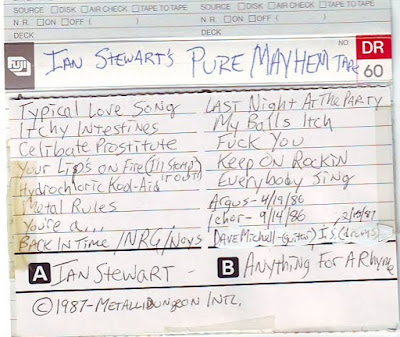 SOURCE □ DISK □ AIR CHECK □ TAPE TO TAPE
SOURCE □ DISK □ AIR CHECK □ TAPE TO TAPE
N.R. □ ON □ OFF ( )
N.R. □ ON □ OFF ( )
DECK
DECK
FUJI
IAN STEWART'S PURE MAYHEM TAPE
NO.
DR
60
Typical Love Song
Itchy Intestines
Celibate Prostitute
Your Lip's on Fire (I'll stomp
it out)
Hydrochloric Kool-Aid
Metal Rules
You're a...
BACK IN TIME /NRG/Noys
LAST Night At The PARTY
My Balls Itch
Fuck You
Keep On Rockin
Everybody Sing
Argus - 4/19/86
Ichor - 9/14/86
2/15/87
DAVE Michell-(guitar) I.S (drums)
A IAN STEWART -
B Anything For A Rhyme
©1987-METALLIDUNGEON INTL.